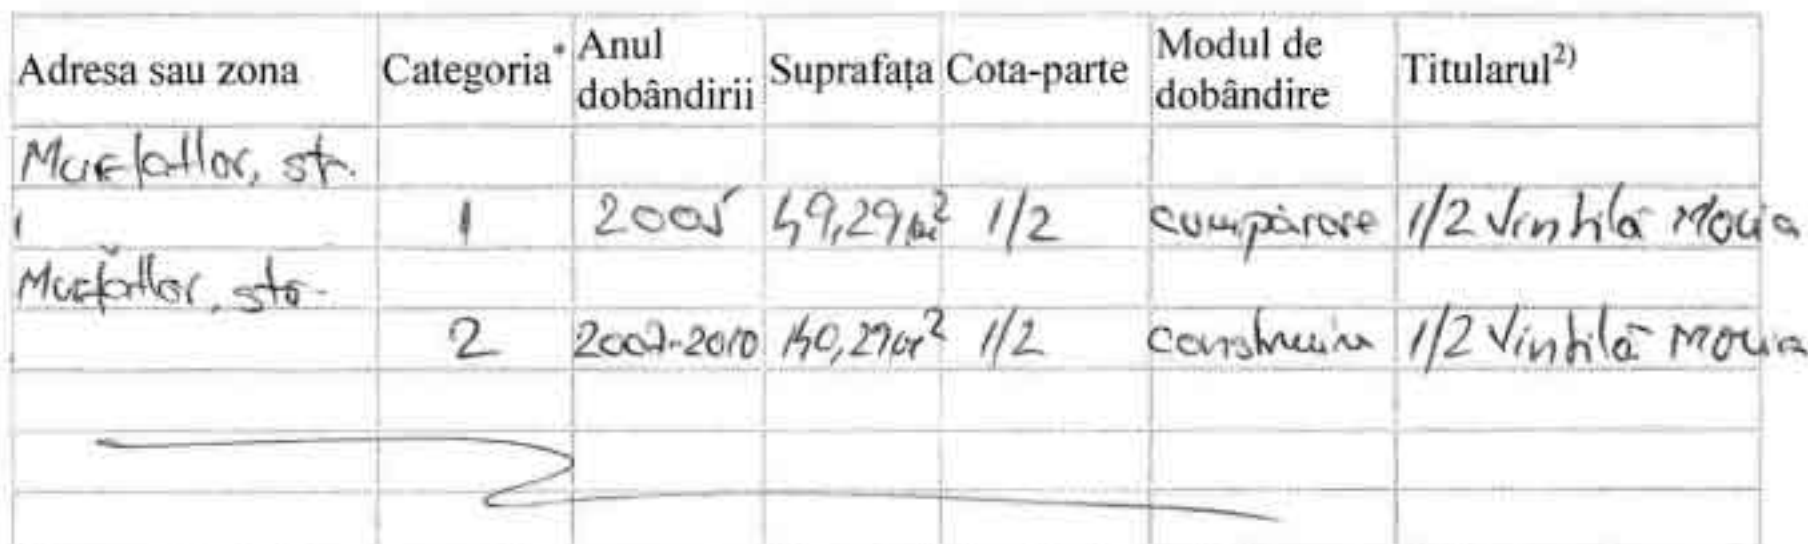 Adresa sau zona Categoria* Anul dobândirii Suprafața Cota-parte Modul de dobândire Titularul2)
Murfatlar, str.
1 2005 49,29 m² 1/2 cumpărare 1/2 Vintilă Maria
Murfatlar, str.
2 2007-2010 140,29 m² 1/2 construire 1/2 Vintilă Maria